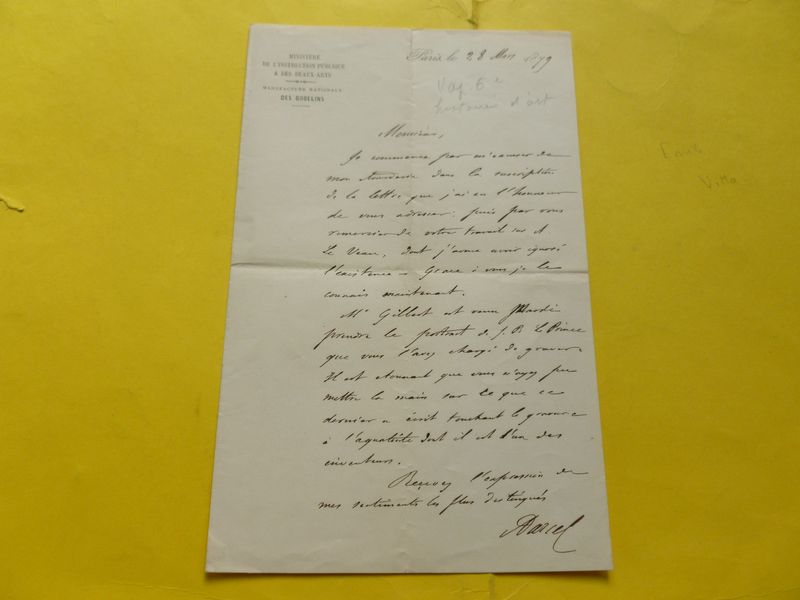 MINISTÈRE
DE L'INSTRUCTION PUBLIQUE
& DES BEAUX-ARTS
MANUFACTURE NATIONALE
DES GOBELINS
Paris le 28 Mars 1879
histoire d'art
Monsieur,
Je commence par m'excuser de
mon étourderie dans la suscription
de la lettre que j'ai eu l'honneur
de vous adresser : puis par vous
remercier de votre travail sur A
Le Veau, dont j'avoue avoir ignoré
l'existence – Grace à vous je le
connais maintenant.
Mr Gillbert est venu Mardi
prendre le portrait de J. B. Le Prince
que vous l'avez chargé de graver.
Il est étonnant que vous n'ayez pu
mettre la main sur ce que ce
dernier a écrit touchant la gravure
à l'aquatinte dont il est l'un des
inventeurs.
Recevez l'expression de
mes sentiments les plus distingués
Darcel
Emile